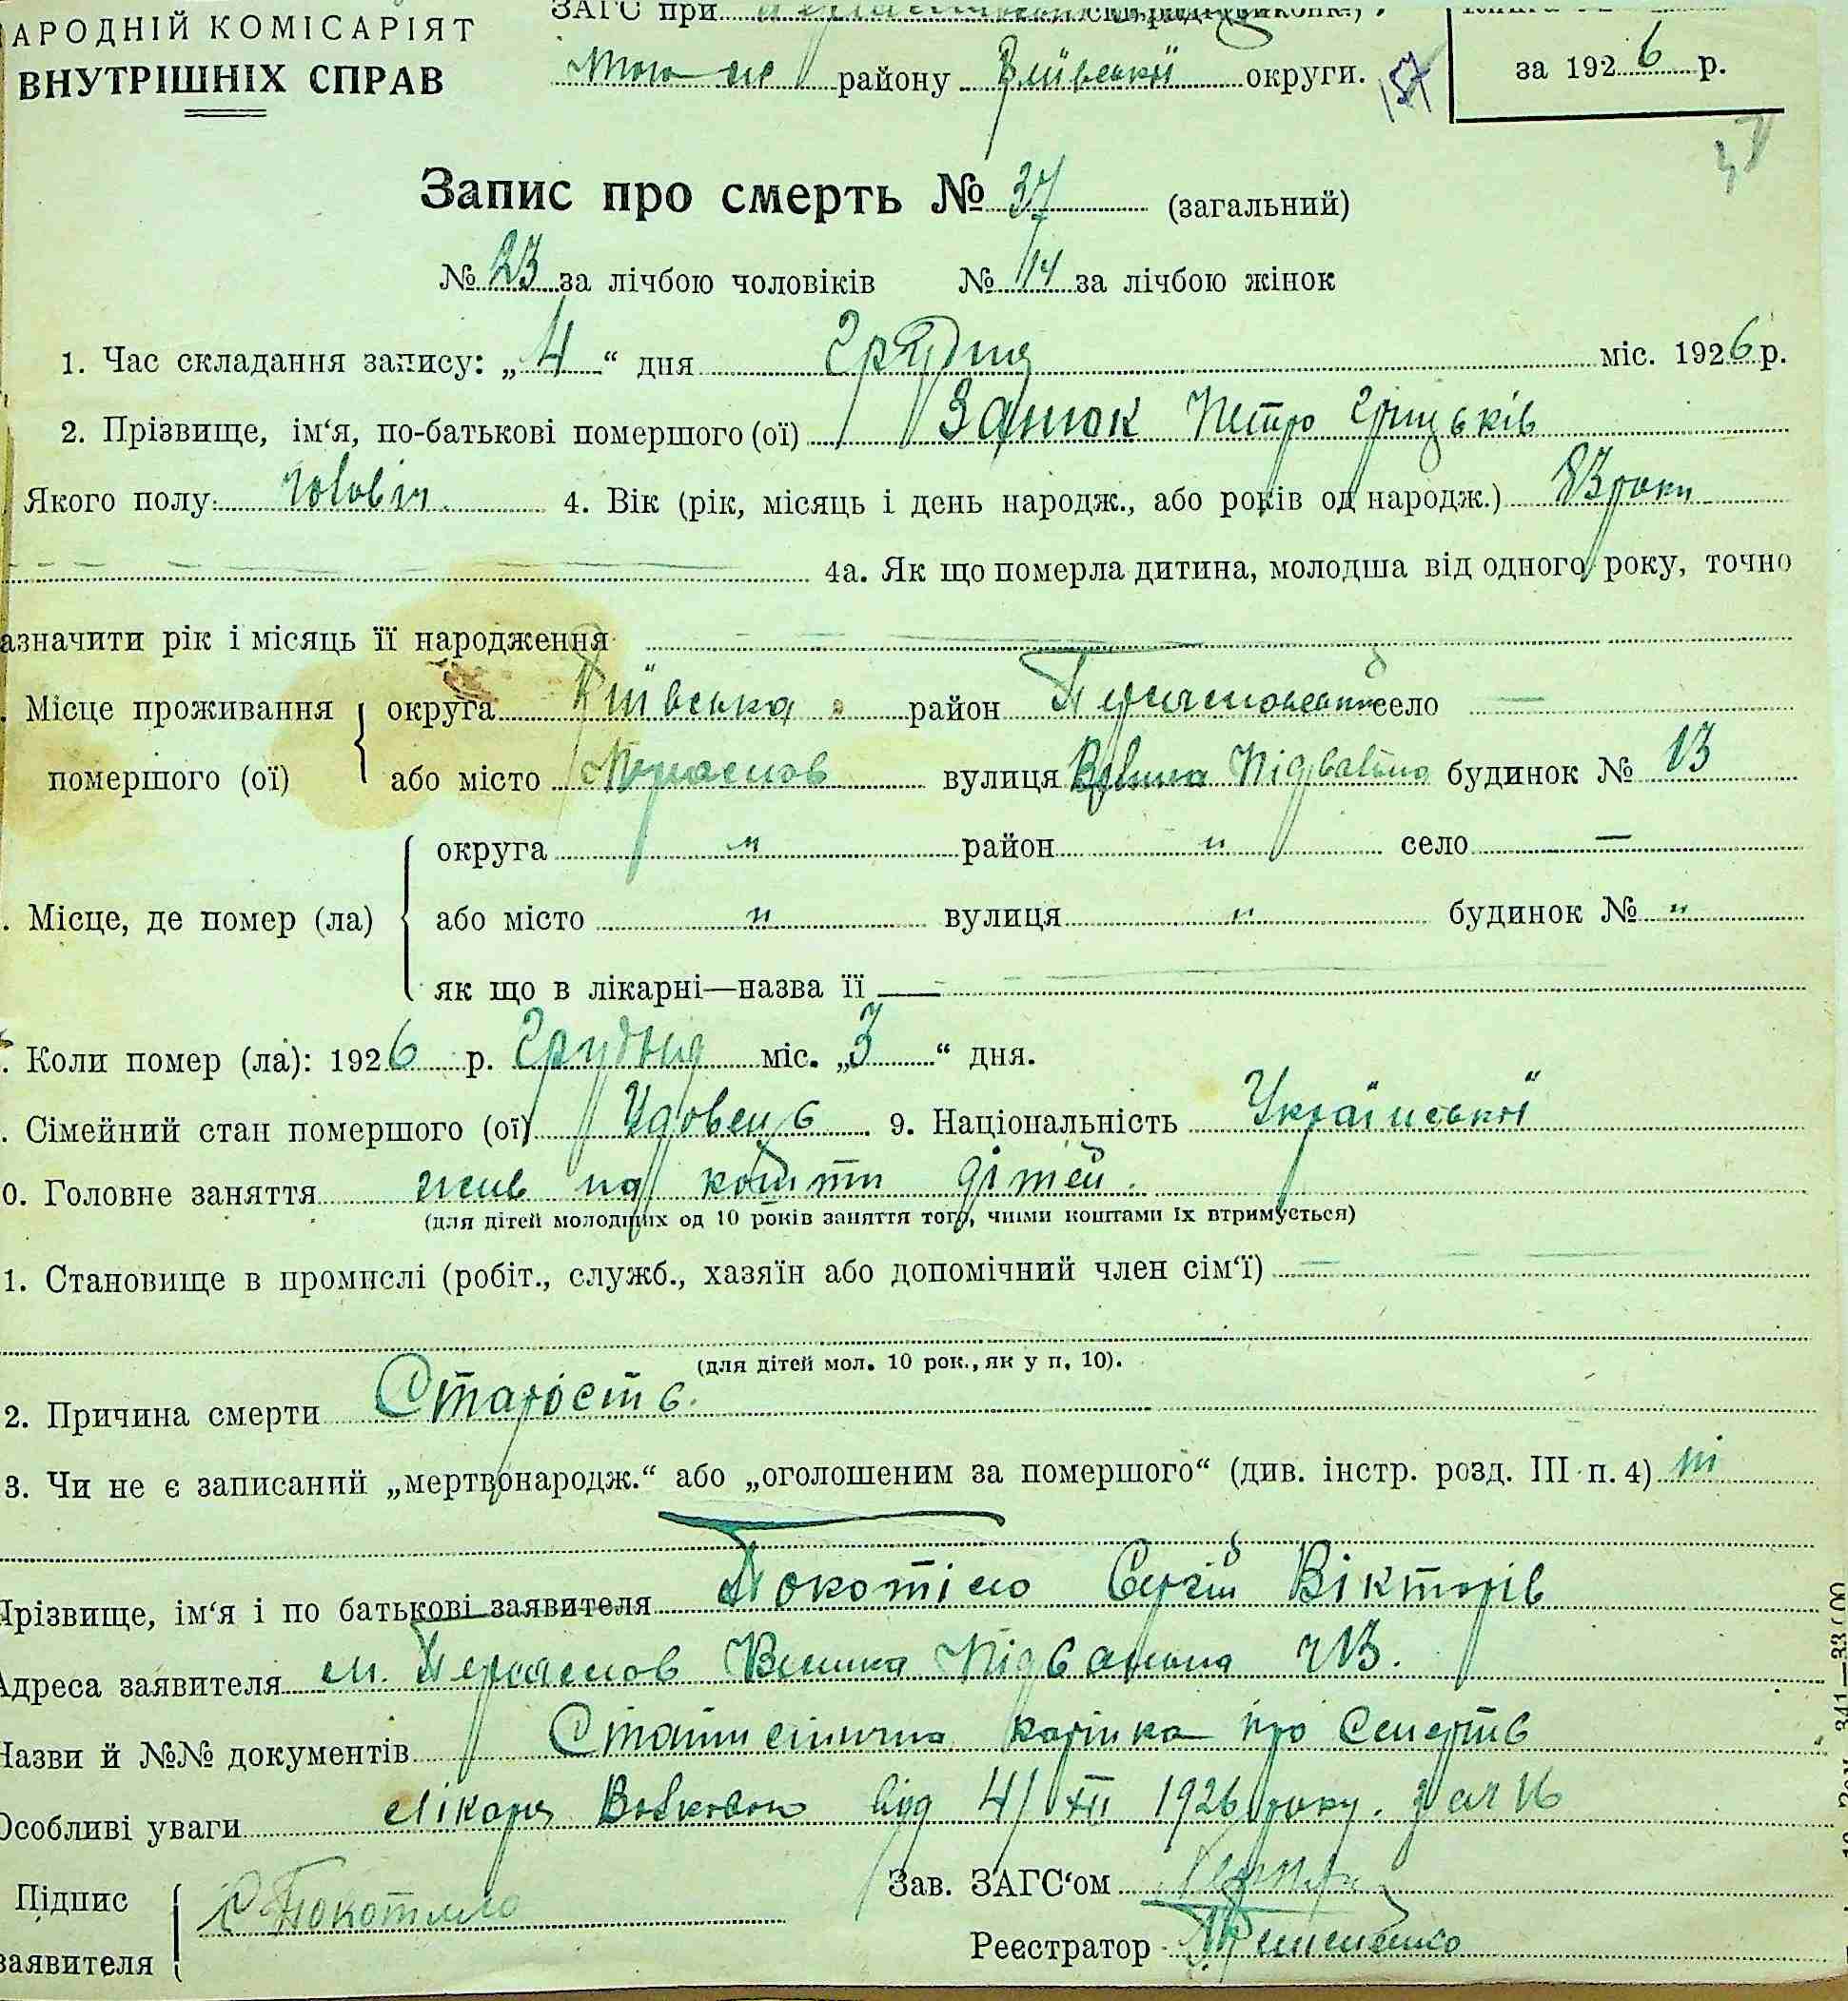 АРОДНІЙ КОМІСАРІЯТ
ВНУТРІШНІХ СПРАВ
ЗАГС при
того же району Київської округи.
за 1926 р.
Запис про смерть № 37 (загальний)
№ 23 за лічбою чоловіків № 14 за лічбою жінок
1. Час складання запису: „4“ дня Грудня міс. 1926 р.
2. Прізвище, ім‘я, по-батькові помершого (ої) Петро Грицьків
Якого полу: чоловіч. 4. Вік (рік, місяць і день народж., або років од народж.) 83 роки
4а. Як що померла дитина, молодша від одного року, точно
азначити рік і місяць її народження
. Місце проживання округа Київська район село —
помершого (ої) або місто вулиця Підвальна будинок № 13
округа „ район „ село —
. Місце, де помер (ла) або місто „ вулиця „ будинок № „
як що в лікарні—назва її —
. Коли помер (ла): 1926 р. Грудня міс. „3“ дня.
. Сімейний стан помершого (ої) Удовець 9. Національність Української
0. Головне заняття жив на кошти дітей.
(для дітей молодших од 10 років заняття того, чиїми коштами їх втримується)
1. Становище в промислі (робіт., служб., хазяїн або допомічний член сім‘ї) —
(для дітей мол. 10 рок., як у п. 10).
2. Причина смерти Старість.
3. Чи не є записаний „мертвонародж.“ або „оголошеним за помершого“ (див. інстр. розд. III п. 4) ні
Прізвище, ім‘я і по батькові заявителя Покотіло Сергій Вікторів
Адреса заявителя м. Підвальна ч 13.
Назви й №№ документів Статистична картка про смерть
Особливі уваги лікаря від 4/XII 1926 року. за № 16
Підпис С Покотило Зав. ЗАГС‘ом
заявителя Реєстратор